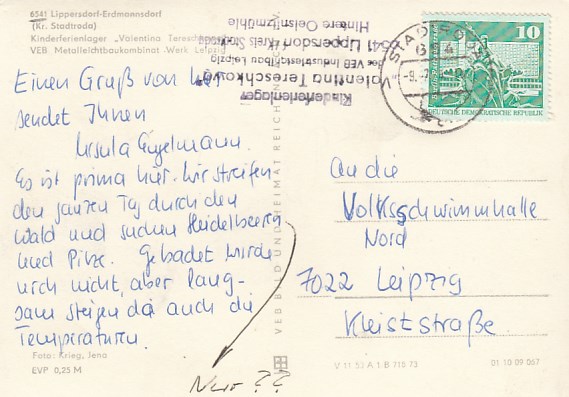 6541 Lippersdorf-Erdmannsdorf
(Kr. Stadtroda)
Kinderferienlager "Valentina Tereschkowa"
VEB Metalleichtbaukombinat Werk Leipzig
Kinderferienlager
"Valentina Tereschkowa"
der VEB Industriestahlbau Leipzig
6541 Lippersdorf / Kreis Stadtroda
Hintere Oelsnitzmühle
10
DEUTSCHE DEMOKRATISCHE REPUBLIK
Einen Gruß von hier
sendet Ihnen
Ursula Engelmann.
Es ist prima hier. Wir streifen
den ganzen Tag durch den
Wald und suchen Heidelbeeren
und Pilze. Gebadet wurde
noch nicht, aber lang-
sam steigen da auch die
Temperaturen.
An die
Volksschwimmhalle
Nord
7022 Leipzig
Kleiststraße
Foto: Krieg, Jena
EVP 0,25 M
VEB BILD UND HEIMAT REICHENBACH
V 11 53 A 1-B 715 73
01 10 09 067